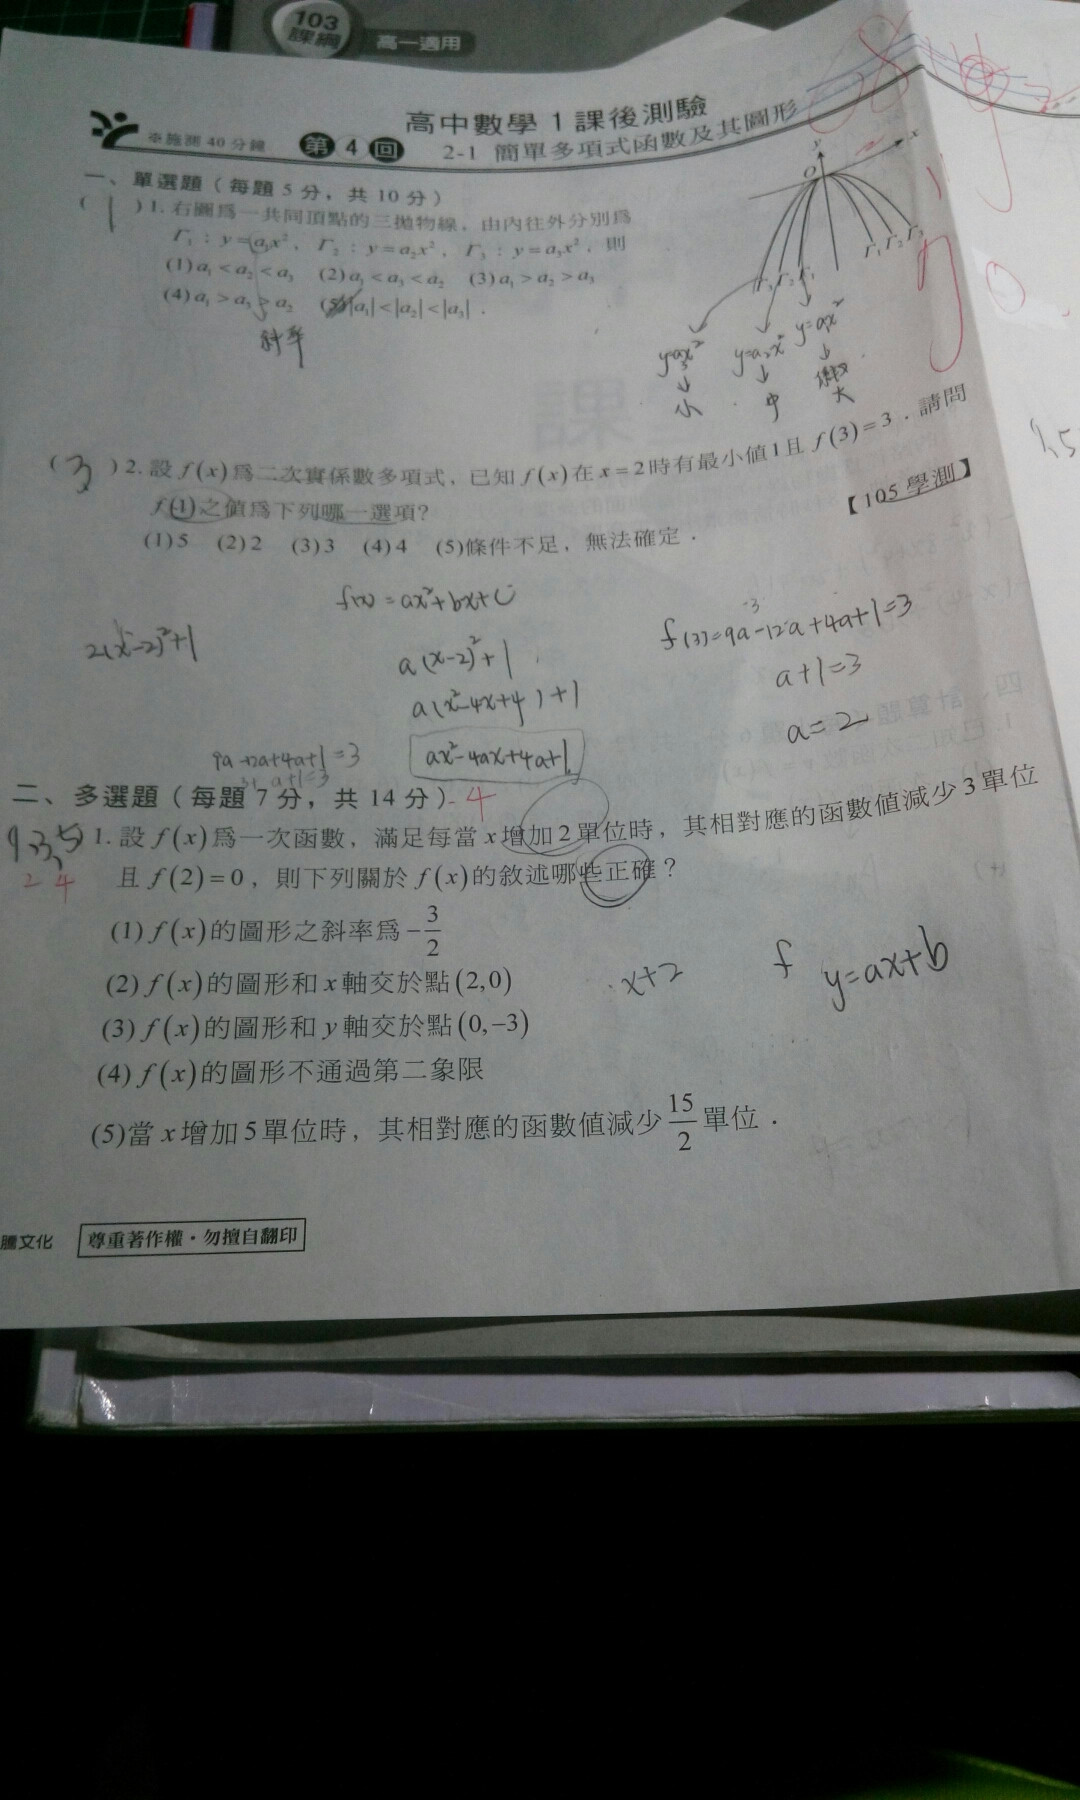 103
課綱
高一適用
高中數學 1 課後測驗
※施測 40 分鐘 第 4 回 2-1 簡單多項式函數及其圖形
一、單選題（每題 5 分，共 10 分）
( 1 ) 1. 右圖為一共同頂點的三拋物線，由內往外分別為
Γ₁：y=a₁x²，Γ₂：y=a₂x²，Γ₃：y=a₃x²，則
(1) a₁<a₂<a₃ (2) a₁<a₃<a₂ (3) a₁>a₂>a₃
(4) a₁>a₃>a₂ (5) |a₁|<|a₂|<|a₃|．
斜率
y
x
O
Γ₁ Γ₂ Γ₃
Γ₃ Γ₂ Γ₁
y=a₃x² y=a₂x² y=a₁x²
小 中 大
( 3 ) 2. 設 f(x) 為二次實係數多項式，已知 f(x) 在 x=2 時有最小值 1 且 f(3)=3．請問
f(1) 之值為下列哪一選項？ 【105 學測】
(1) 5 (2) 2 (3) 3 (4) 4 (5) 條件不足，無法確定．
f(x)=ax²+bx+c
2(x-2)²+1
a(x-2)²+1
a(x²-4x+4)+1
ax²-4ax+4a+1
f(3)=9a-12a+4a+1=3
-3
a+1=3
a=2
9a-12a+4a+1=3
a+1=3
二、多選題（每題 7 分，共 14 分）-4
1,3,5
2 4
1. 設 f(x) 為一次函數，滿足每當 x 增加 2 單位時，其相對應的函數值減少 3 單位
且 f(2)=0，則下列關於 f(x) 的敘述哪些正確？
(1) f(x) 的圖形之斜率為 -3/2
(2) f(x) 的圖形和 x 軸交於點 (2,0)
(3) f(x) 的圖形和 y 軸交於點 (0,-3)
(4) f(x) 的圖形不通過第二象限
(5) 當 x 增加 5 單位時，其相對應的函數值減少 15/2 單位．
x+2
f y=ax+b
騰文化 尊重著作權・勿擅自翻印